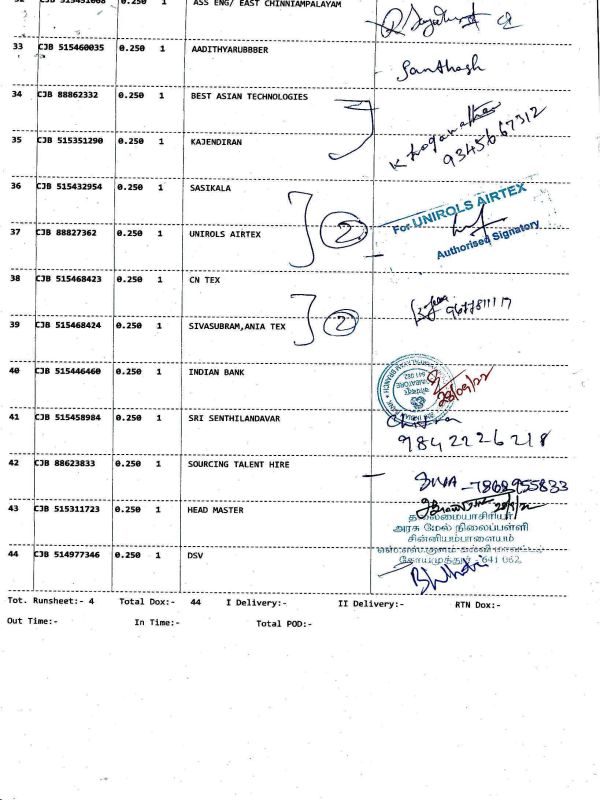 ASS ENG/ EAST CHINNIAMPALAYAM
33 CJB 515460035 0.250 1 AADITHYARUBBBER
Santhosh
34 CJB 88862332 0.250 1 BEST ASIAN TECHNOLOGIES
35 CJB 515351290 0.250 1 KAJENDIRAN
9345667312
36 CJB 515432954 0.250 1 SASIKALA
2
For UNIROLS AIRTEX
Authorised Signatory
37 CJB 88827362 0.250 1 UNIROLS AIRTEX
38 CJB 515468423 0.250 1 CN TEX
2
39 CJB 515468424 0.250 1 SIVASUBRAM,ANIA TEX
40 CJB 515446460 0.250 1 INDIAN BANK
28/09/22
41 CJB 515458984 0.250 1 SRI SENTHILANDAVAR
9842226218
42 CJB 88623833 0.250 1 SOURCING TALENT HIRE
SIVA - 7868955833
43 CJB 515311723 0.250 1 HEAD MASTER
தலைமையாசிரியர்
அரசு மேல் நிலைப்பள்ளி
சின்னியம்பாளையம்
44 CJB 514977346 0.250 1 DSV
கோயமுத்தூர் - 641 062.
Tot. Runsheet:- 4 Total Dox:- 44 I Delivery:- II Delivery:- RTN Dox:-
Out Time:- In Time:- Total POD:-